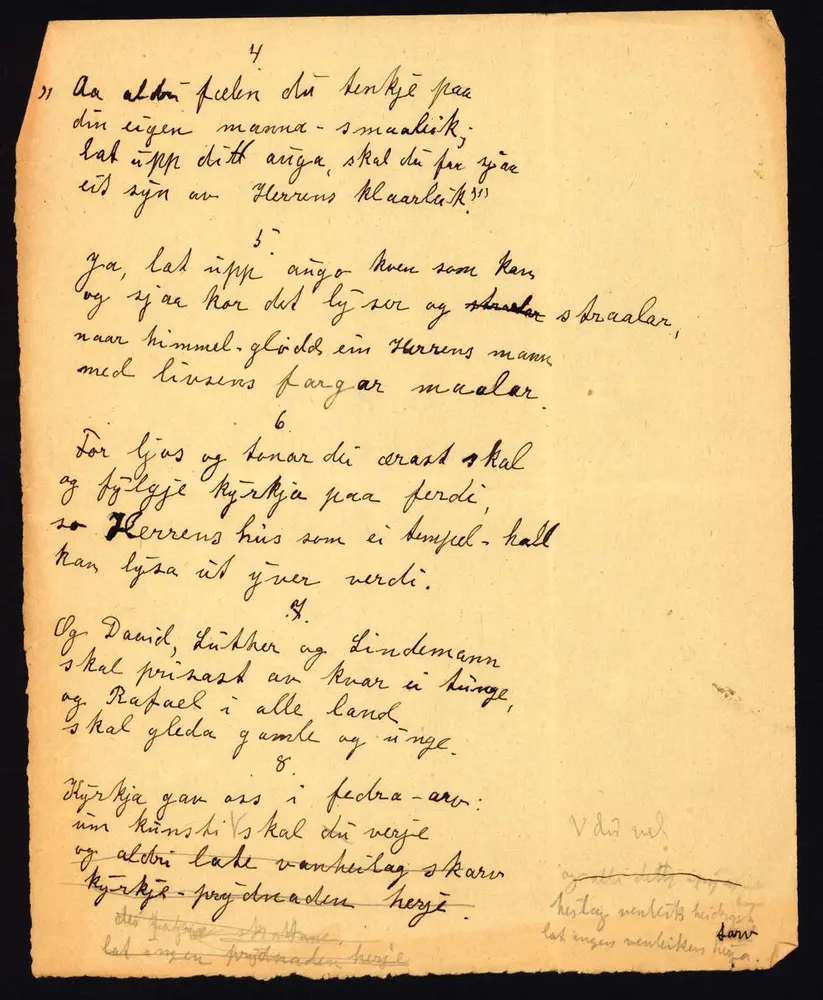 4
" Aa aldri fælin du tenkje paa
din eigen manna-smaaleik;
lat upp ditt auga, skal du faa sjaa
eit syn av Herrens klaarleik."
5
Ja, lat upp augo kven som kan
og sjaa kor det lyser og straalar straalar,
naar himmel-glødd ein Herrens mann
med livsens fargar maalar.
6
For ljos og tonar dei ærast skal
og fylgje kyrkja paa ferdi,
so Herrens hus som ei tempel-hall
kan lysa ut yver verdi.
7.
Og David, Luther og Lindemann
skal prisast av kvar ei tunge,
og Rafael i alle land
skal gleda gamle og unge.
8.
Kyrkja gav oss i fedra-arv:
um kunsti V skal du verje
V du vel
og aldri late vanheilag skarv
kyrkje-prydnaden herje.
og
heilag venleik
tarv
lat ingen venleiken herja.
lat ingen prydnaden herje